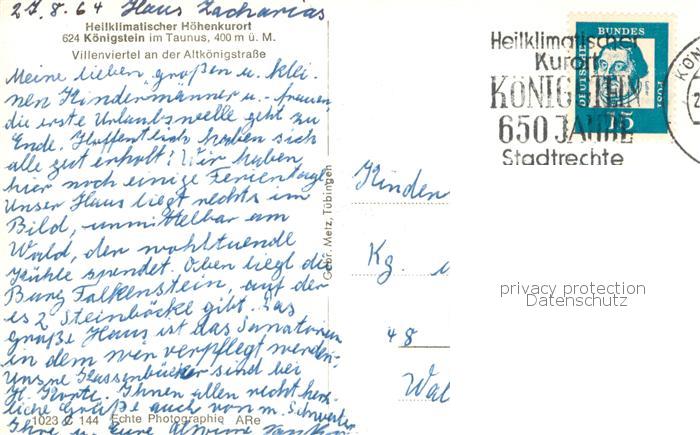 27.8.64 Haus Zacharias
Heilklimatischer Höhenkurort
624 Königstein im Taunus, 400 m ü. M.
Villenviertel an der Altkönigstraße
Meine lieben, großen u. klei-
nen Kindermänner u. -frauen,
die erste Urlaubswelle geht zu
Ende. Hoffentlich haben sich
alle gut erholt! Wir haben
hier noch einige Ferientage.
Unser Haus liegt rechts im
Bild, unmittelbar am
Wald, der wohltuende
Kühle spendet. Oben liegt die
Burg Falkenstein, auf der
es 2 Steinböcke gibt. Das
große Haus ist das Sanatorium
in dem wir verpflegt werden.
Unsre Kassenbücher sind bei
H. Korte. Ihnen allen recht herz-
liche Grüße auch von m. Schwester
Ihre u. Eure
1023 C 144 Echte Photographie ARe
Gebr. Metz, Tübingen
Heilklimatischer
Kurort
KÖNIGSTEIN
650 JAHRE
Stadtrechte
DEUTSCHE
BUNDES
POST
15
KÖN
Kinden
Kg.
48
Wal
privacy protection
Datenschutz